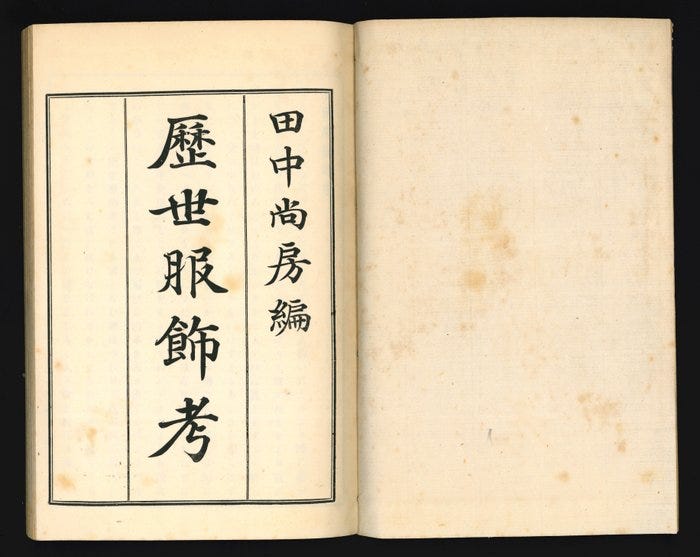 田中尚房編
歷世服飾考